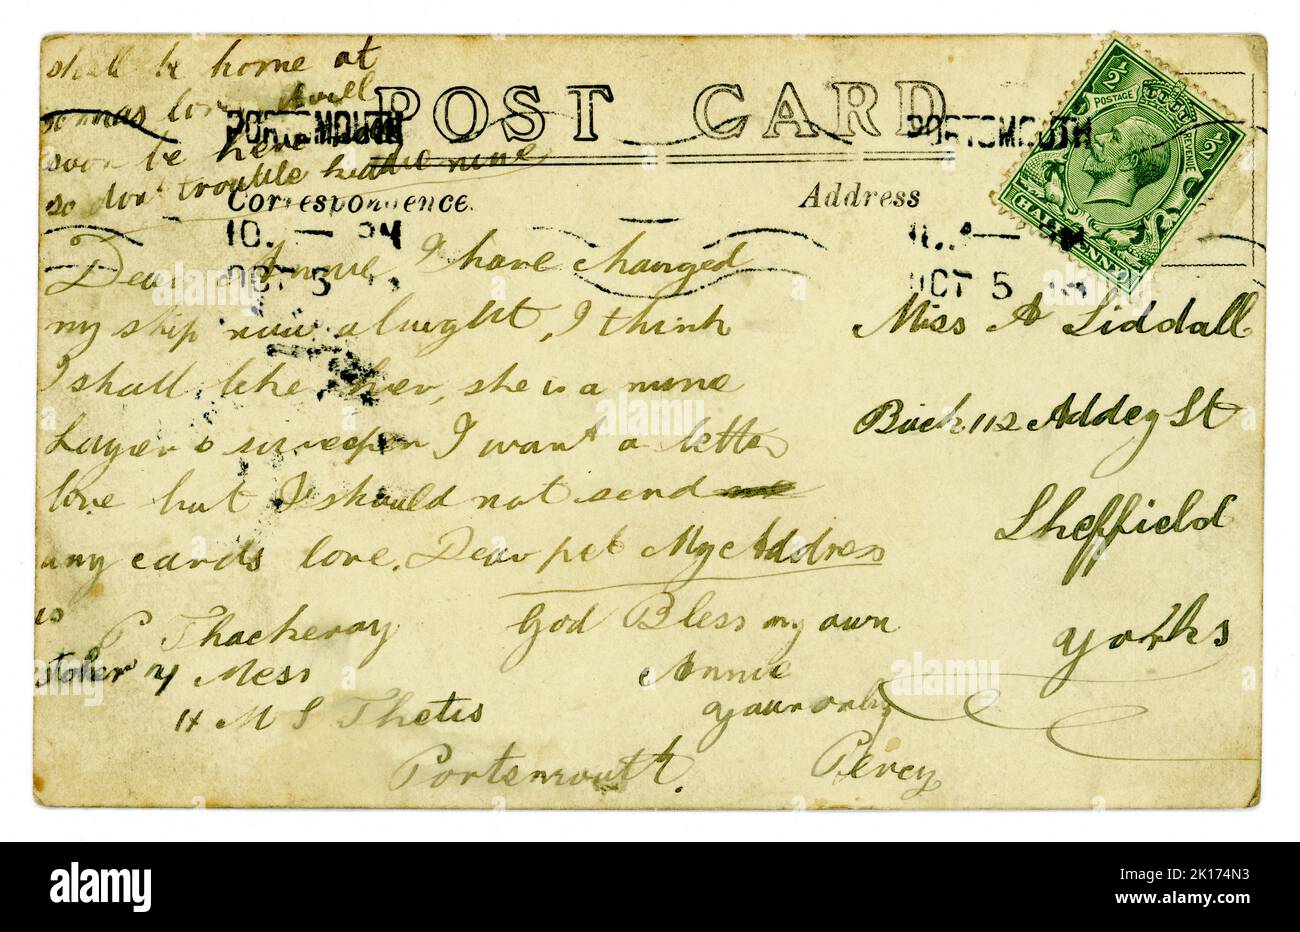 shall be home at
xmas love it will
soon be here
so don't trouble kiddie mine
POST CARD
PORTSMOUTH
PORTSMOUTH
Correspondence.
Address
10. — PM
OCT 5
OCT 5
½ POSTAGE REVENUE ½
HALFPENNY
Dear Annie I have changed
my ship now alwright, I think
I shall like her, she is a mine
Layer & sweeper I want a letter
love but I should not send
any cards love. Dear pet My Address
is
P Thackeray
stoker Mess
H M S Thetis
Portsmouth.
God Bless my own
Annie
your only
Percy
Miss A Liddall
Back 112 Addey St
Sheffield
Yorks
alamy
Image ID: 2K174N3
www.alamy.com